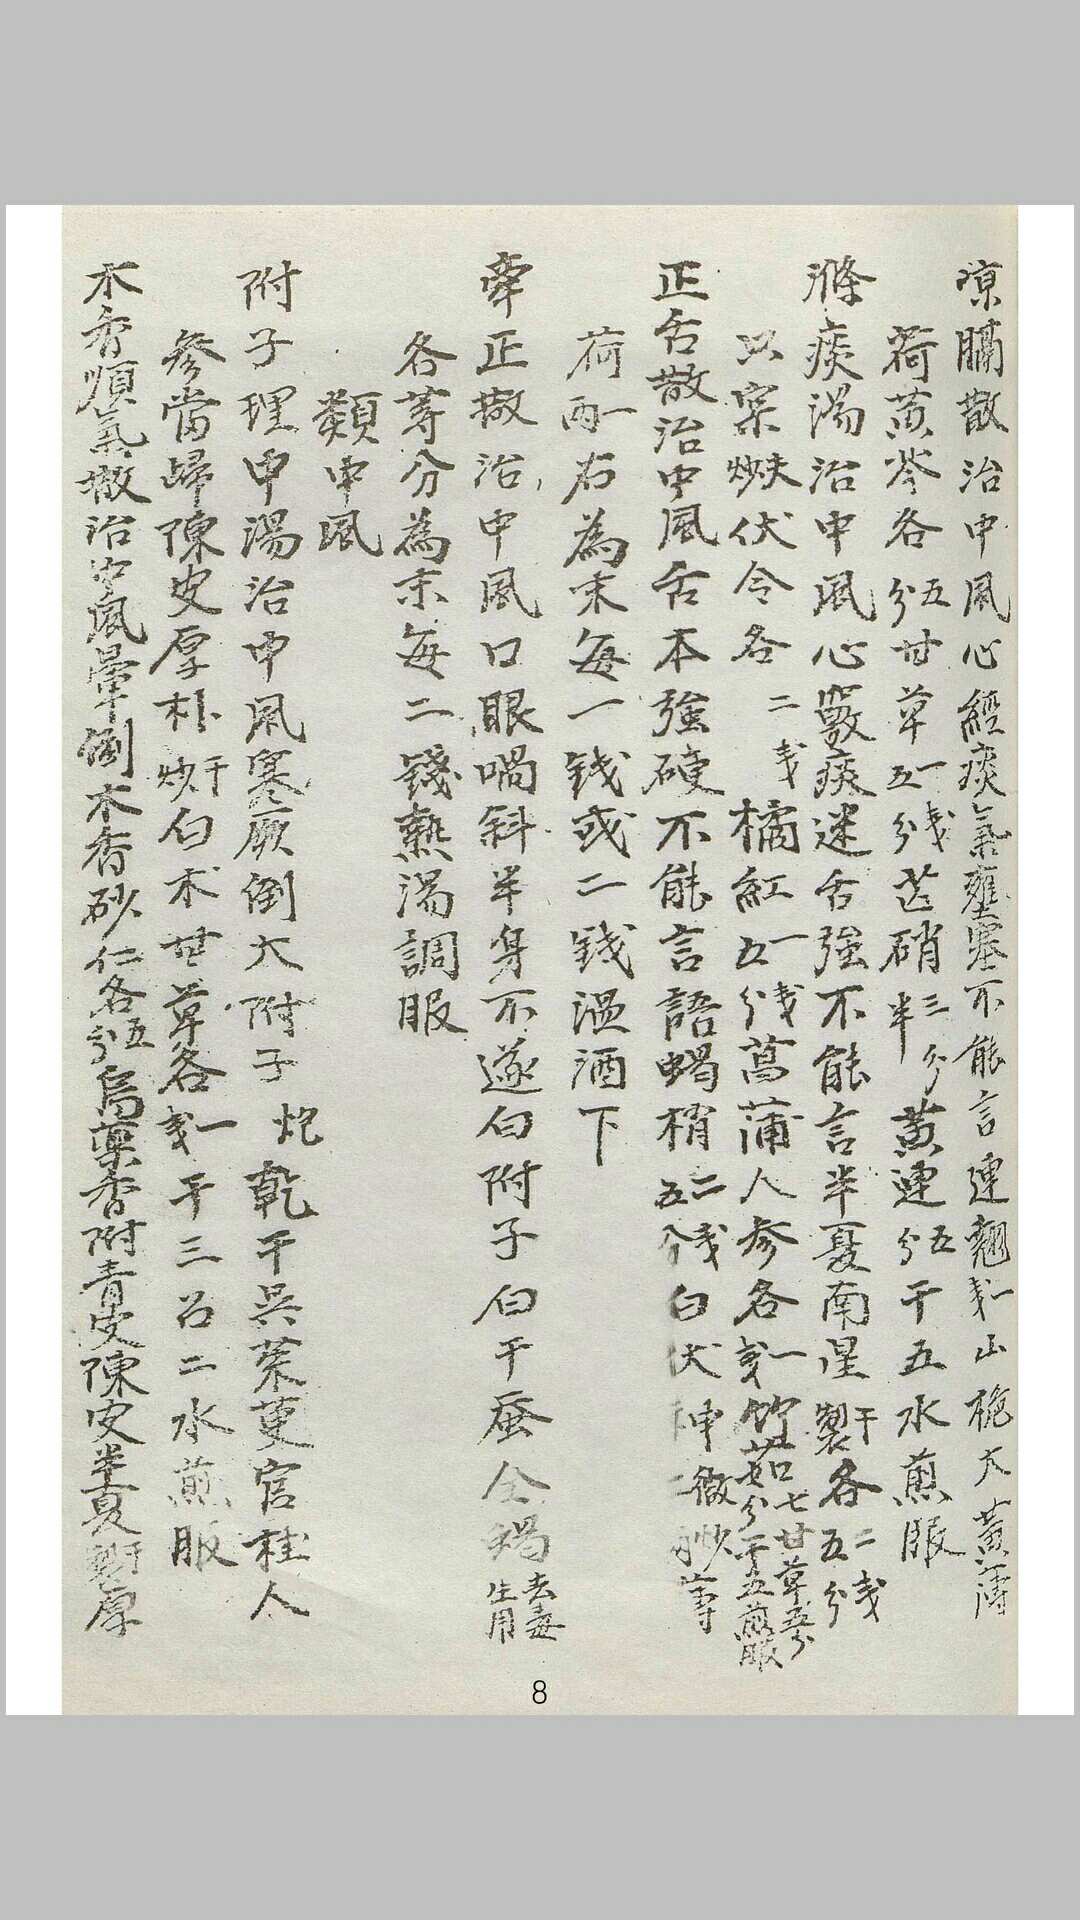 凉膈散治中風心經痰氣壅塞不能言連翹一戔山梔大黄薄
荷黄芩各五分甘草一戔五分芒硝三分半黄連五分干五水煎服
滌痰湯治中風心竅痰迷舌強不能言半夏南星干製各二戔五分
只実麸炒伏令各二戔橘紅一戔五分菖蒲人参各一戔竹茹七分甘草五分干五煎服
正舌散治中風舌本強硬不能言語蝎梢二戔五分白伏神微炒薄
荷一両右為末每一钱或二钱温酒下
牽正撒治中風口眼喎斜半身不遂白附子白干蚕全蝎去毒生用
各等分為末每二錢熱湯調服
類中風
附子理中湯治中風寒厥倒大附子炮乾干吳茱萸官桂人
參當歸陳皮厚朴干炒白术甘草各一戔干三召二水煎服
木香順氣撒治中風暈倒木香砂仁各五分烏藥香附青皮陳皮半夏干製厚
8